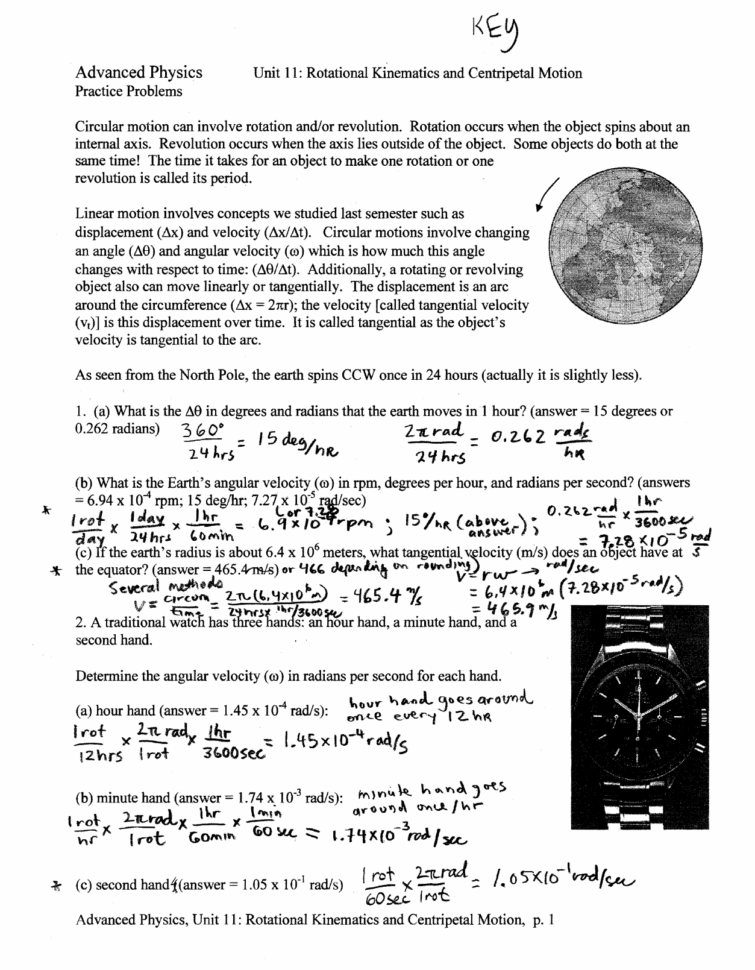 KEY
Advanced Physics Unit 11: Rotational Kinematics and Centripetal Motion
Practice Problems
Circular motion can involve rotation and/or revolution. Rotation occurs when the object spins about an
internal axis. Revolution occurs when the axis lies outside of the object. Some objects do both at the
same time! The time it takes for an object to make one rotation or one
revolution is called its period.
Linear motion involves concepts we studied last semester such as
displacement (Δx) and velocity (Δx/Δt). Circular motions involve changing
an angle (Δθ) and angular velocity (ω) which is how much this angle
changes with respect to time: (Δθ/Δt). Additionally, a rotating or revolving
object also can move linearly or tangentially. The displacement is an arc
around the circumference (Δx = 2πr); the velocity [called tangential velocity
(vₜ)] is this displacement over time. It is called tangential as the object's
velocity is tangential to the arc.
As seen from the North Pole, the earth spins CCW once in 24 hours (actually it is slightly less).
1. (a) What is the Δθ in degrees and radians that the earth moves in 1 hour? (answer = 15 degrees or
0.262 radians) 360°/24 hrs = 15 deg/HR 2π rad/24 hrs = 0.262 rads/HR
(b) What is the Earth's angular velocity (ω) in rpm, degrees per hour, and radians per second? (answers
= 6.94 x 10⁻⁴ rpm; 15 deg/hr; 7.27 x 10⁻⁵ rad/sec)
* 1 rot/day × 1 day/24 hrs × 1 hr/60 min = 6.9 × 10⁻⁴ rpm ; 15°/HR (above answer) ; 0.262 rad/hr × 1 hr/3600 sec
or 7.28
= 7.28 × 10⁻⁵ rad/s
(c) If the earth's radius is about 6.4 x 10⁶ meters, what tangential velocity (m/s) does an object have at
* the equator? (answer = 465.4 m/s) or 466 depending on rounding) V = rω → rad/sec
Several methods
V = circum/time = 2π(6.4×10⁶ m)/24 hrs × 1 hr/3600 sec = 465.4 m/s = 6.4 × 10⁶ m (7.28 × 10⁻⁵ rad/s)
= 465.9 m/s
2. A traditional watch has three hands: an hour hand, a minute hand, and a
second hand.
Determine the angular velocity (ω) in radians per second for each hand.
(a) hour hand (answer = 1.45 x 10⁻⁴ rad/s): hour hand goes around
once every 12 HR
1 rot/12 hrs × 2π rad/1 rot × 1 hr/3600 sec = 1.45 × 10⁻⁴ rad/s
(b) minute hand (answer = 1.74 x 10⁻³ rad/s): minute hand goes
around once/hr
1 rot/hr × 2π rad/1 rot × 1 hr/60 min × 1 min/60 sec = 1.74 × 10⁻³ rad/sec
* (c) second hand (answer = 1.05 x 10⁻¹ rad/s) 1 rot/60 sec × 2π rad/1 rot = 1.05 × 10⁻¹ rad/sec
Advanced Physics, Unit 11: Rotational Kinematics and Centripetal Motion, p. 1